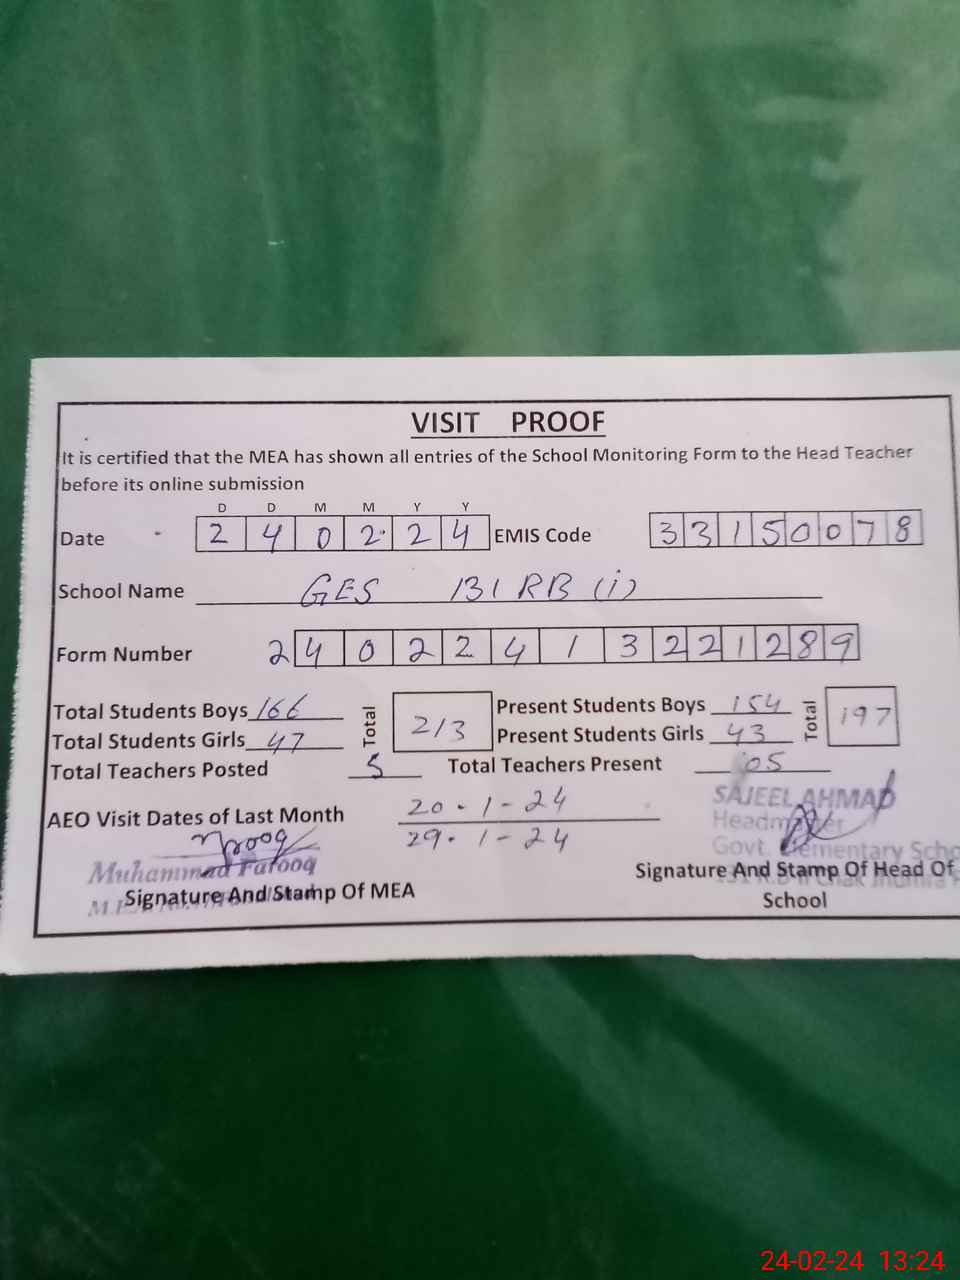 VISIT PROOF
It is certified that the MEA has shown all entries of the School Monitoring Form to the Head Teacher
before its online submission
D D M M Y Y
Date 2 4 0 2 2 4 EMIS Code 3 3 1 5 0 0 7 8
School Name GES 131 RB (i)
Form Number 2 4 0 2 2 4 1 3 2 2 1 2 8 9
Total Students Boys 166 Total 213 Present Students Boys 154 Total 197
Total Students Girls 47 Present Students Girls 43
Total Teachers Posted 5 Total Teachers Present 05
AEO Visit Dates of Last Month 20-1-24
29-1-24
SAJEEL AHMAD
Headmaster
Govt. Elementary Scho
Muhammad Farooq
Signature And Stamp Of MEA
Signature And Stamp Of Head Of
School
24-02-24 13:24